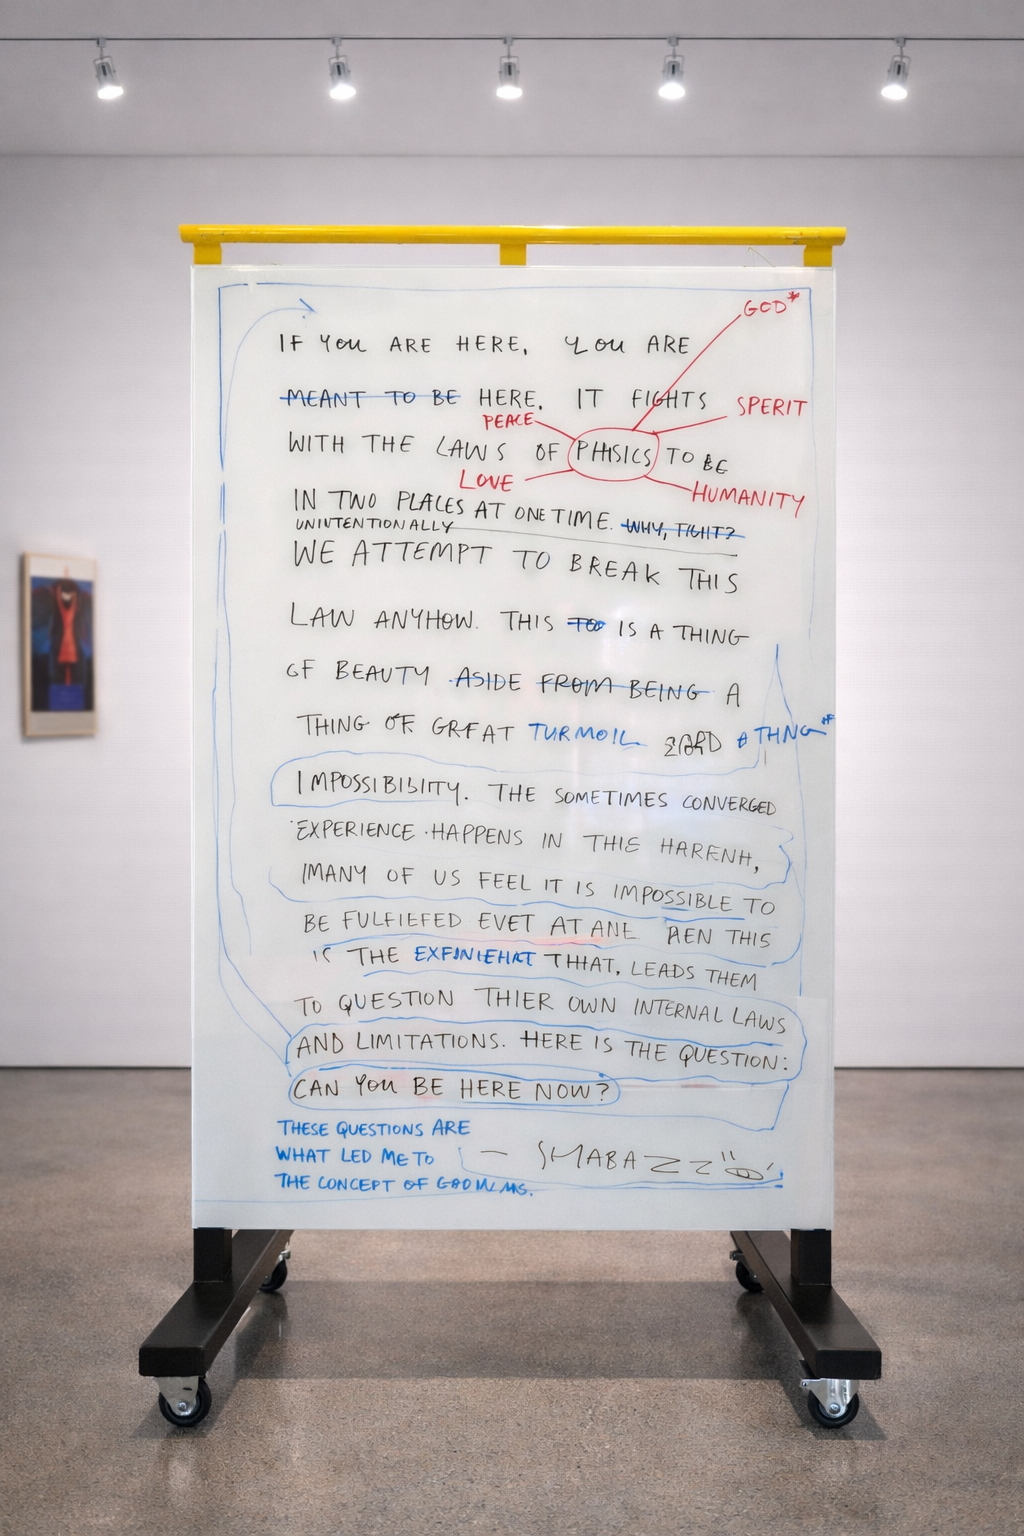 GOD*
IF YOU ARE HERE, YOU ARE
MEANT TO BE HERE. IT FIGHTS
SPERIT
PEACE
WITH THE LAWS OF PHISICS TO BE
LOVE
HUMANITY
IN TWO PLACES AT ONE TIME. WHY,
UNINTENTIONALLY
WE ATTEMPT TO BREAK THIS
LAW ANYHOW. THIS TOO IS A THING
OF BEAUTY ASIDE FROM BEING A
THING OF GREAT TURMOIL A THNG
IMPOSSIBISITY. THE SOMETIMES CONVERGED
EXPERIENCE HAPPENS IN THIE HARENH,
MANY OF US FEEL IT IS IMPOSSIBLE TO
BE FULFIEFED EVET AT ANE THIS
THE THHAT, LEADS THEM
TO QUESTION THIER OWN INTERNAL LAWS
AND LIMITATIONS. HERE IS THE QUESTION:
CAN YOU BE HERE NOW?
THESE QUESTIONS ARE
WHAT LED ME TO
THE CONCEPT OF
— SHABAZZ